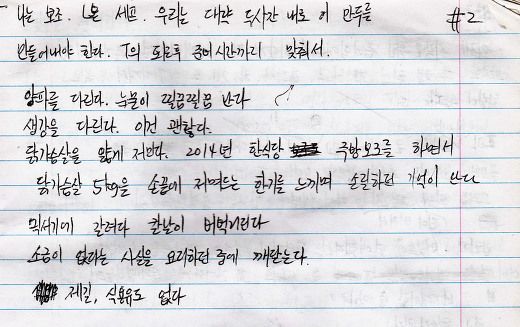 나는 보조. L은 셰프. 우리는 대략 두시간 내로 이 만두를 #2
만들어내야 한다. T의 퇴근후 준비시간까지 맞춰서.
양파를 다린다. 눈물이 찔끔찔끔 난다
생강을 다린다. 이건 괜찮다.
닭가슴살을 얇게 저민다. 2014년 한식당 주방보조를 하면서
닭가슴살 5kg을 손끝에 저며드는 한기를 느끼며 손질하던 기억이 난다
믹서기에 갈려다 칼날이 버벅거린다
소금이 없다는 사실을 요리하던 중에 깨닫는다.
제길, 식용유도 없다